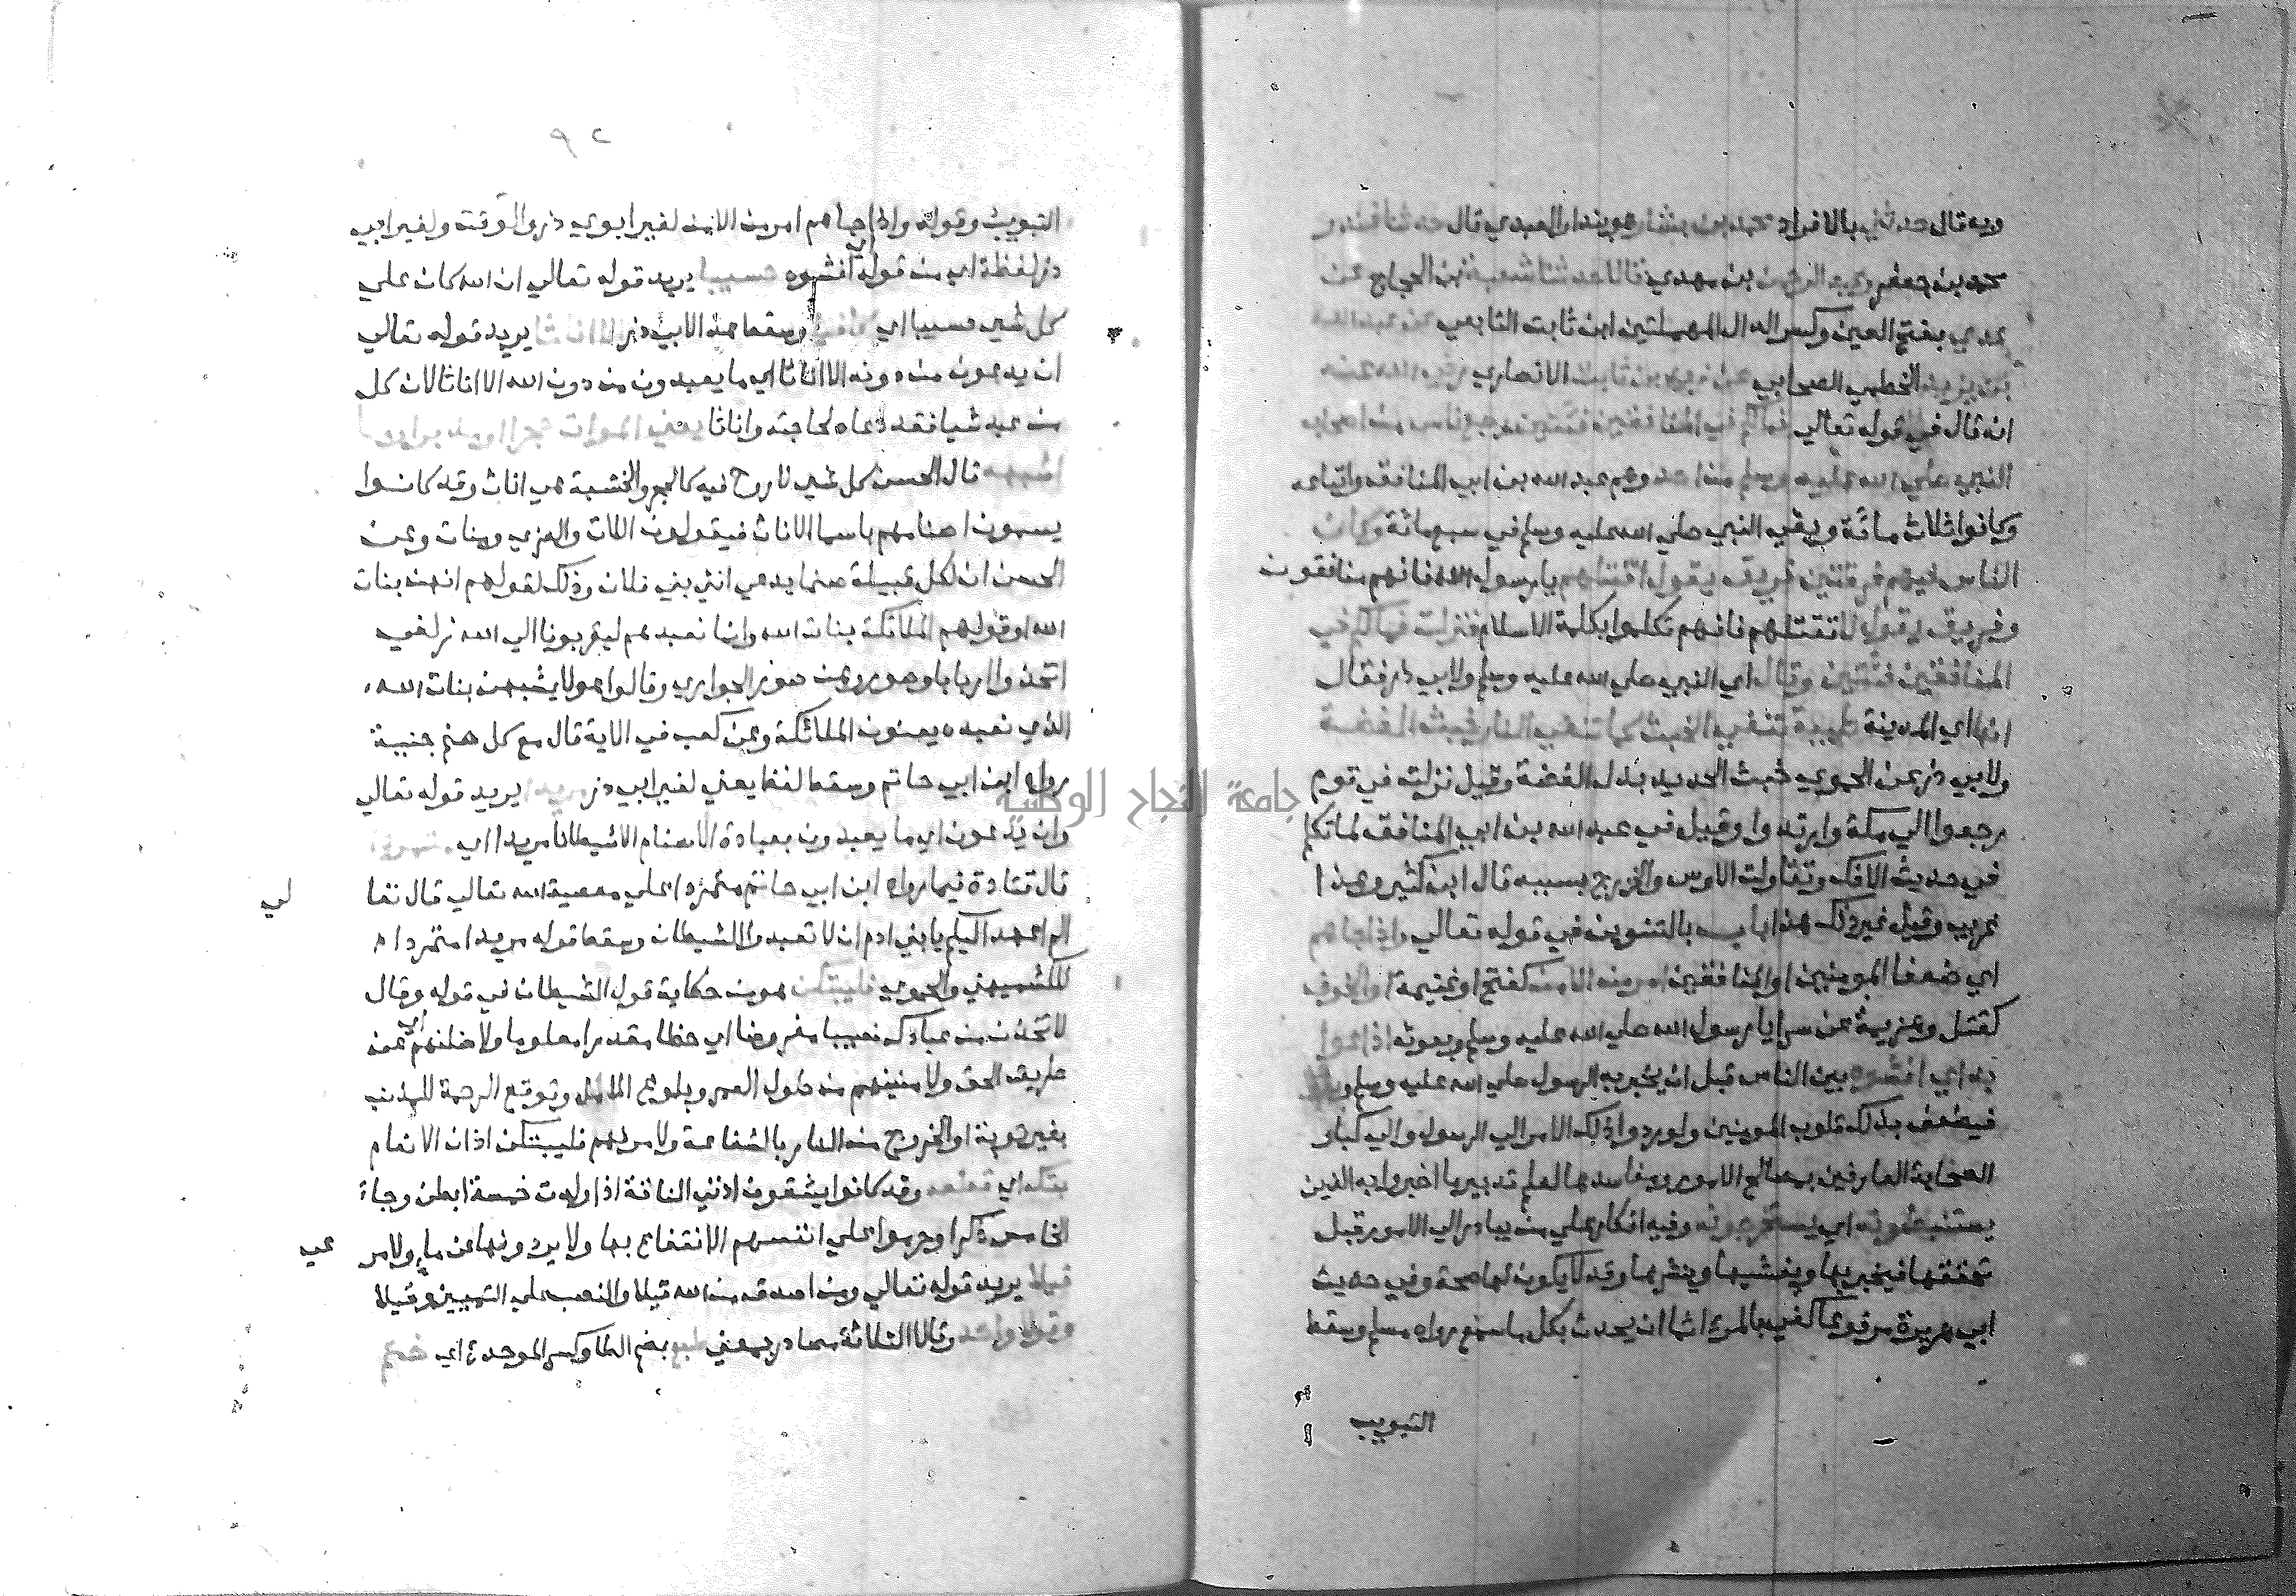 وبه قال حدثني بالافراد محمد بن بشار هو بندار العبدي قال حدثنا غندر
محمد بن جعفر وعبد الرحمن بن مهدي قالا حدثنا شعبة بن الحجاج عن
عدي بفتح العين وكسر الدال المهملتين ابن ثابت التابعي عن عبد الله
بن يزيد الخطمي الصحابي عن زيد بن ثابت الانصاري رضي الله عنه
انه قال في قوله تعالي فمالكم في المنافقين فئتين رجع ناس من اصحاب
النبي صلي الله عليه وسلم من احد وهم عبد الله بن ابي المنافق واتباعه
وكانوا ثلاث مائة وبقي النبي صلي الله عليه وسلم في سبع مائة وكان
الناس فيهم فرقتين فريق يقول اقتلهم يا رسول الله فانهم منافقون
وفريق يقول لا تقتلهم فانهم تكلموا بكلمة الاسلام فنزلت فمالكم في
المنافقين فئتين وقال اي النبي صلي الله عليه وسلم ولابي ذر فقال
انها اي المدينة طيبة تنفي الخبث كما تنفي النار خبث الفضة
ولابي ذر عن الحموي خبث الحديد بدل الفضة وقيل نزلت في قوم
رجعوا الي مكة وارتدوا وقيل في عبد الله بن ابي المنافق لما تكلم
في حديث الافك وتقاولت الاوس والخزرج بسببه قال ابن كثير وهذا
غريب وقيل غير ذلك هذا باب بالتنوين في قوله تعالي واذا جاهم
اي ضعفا المومنين او المنافقين امر من الامن كفتح او غنيمة او الخوف
كقتل وهزيمة عن سرايا رسول الله صلي الله عليه وسلم وبعوثه اذاعوا
به اي افشوه بين الناس قبل ان يخبر به الرسول صلي الله عليه وسلم
فيضعف بذلك قلوب المومنين ولو ردوا ذلك الامر الي الرسول والي كبار
الصحابة العارفين بمصالح الامور ومفاسدها لعلم تدبير ما اخبروا به الذين
يستنبطونه اي يستخرجونه وفيه انكار علي من يبادر الي الامور قبل
تحققها فيخبر بها ويفشيها وينشرها وقد لا يكون لها صحة وفي حديث
ابي هريرة مرفوعا كفي بالمرء اثما ان يحدث بكل ما سمع رواه مسلم وسقط
التبويب
التبويب وقوله واذا جاهم امر من الامن لغير ابوي ذر والوقت ولغير ابي
ذر لفظة اي من قوله اي افشوه حسيبا يريد قوله تعالي ان الله كان علي
كل شي حسيبا اي كافيا وسقط هذا لابي ذر الا اناثا يريد قوله تعالي
ان يدعون من دونه الا اناثا اي ما يعبدون من دون الله الا اناثا لان كل
من عبد شيا فقد دعاه لحاجته واناثا يعني الموات حجرا او مدرا وما
اشبهه قال الحسن كل شي لا روح فيه كالحجر والخشبة هي اناث وقد كانوا
يسمون اصنامهم باسما الاناث فيقولون اللات والعزي ومنات وعن
الحسن ان لكل قبيلة صنما يدعي انثي بني فلان وذلك لقولهم انهن بنات
الله او قولهم الملائكة بنات الله وانا نعبدهم ليقربونا الي الله زلفي
اتخذوا اربابا وصوروهن صور الجواري وقالوا هولا يشبهن بنات الله
الذي نعبده يعنون الملائكة وعن كعب في الاية قال مع كل صنم جنية
رواه ابن ابي حاتم وسقط لفظ يعني لغير ابي ذر مريدا يريد قوله تعالي
وان يدعون اي ما يعبدون بعبادة الاصنام الا شيطانا مريدا اي متمردا
قال قتادة فيما رواه ابن ابي حاتم متمردا علي معصية الله تعالي قال تعا
لي
الم اعهد اليكم يا بني ادم ان لا تعبدوا الشيطان وسقط قوله مريدا متمردا
للكشميهني والحموي فليبتكن هو من حكاية قول الشيطان في قوله وقال
لاتخذن من عبادك نصيبا مفروضا اي حظا مقدرا معلوما ولاضلنهم اي عن
طريق الحق ولامنينهم من طول العمر وبلوغ الامل وتوقع الرحمة للمذنب
بغير توبة او الخروج من النار بالشفاعة ولامرنهم فليبتكن اذان الانعام
بتكه اي قطعه وقد كانوا يشقون اذني الناقة اذا ولدت خمسة ابطن وجاء
الخامس ذكرا وحرموا علي انفسهم الانتفاع بها ولا يردونها عن ماء ولا مر
عي
قيلا يريد قوله تعالي ومن اصدق من الله قيلا والنصب علي التمييز وقيلا
وقولا واحد وقالا الثلاثة مصادر بمعني طبع بضم الطا وكسر الموحدة اي ختم
جامعة النجاح الوطنية